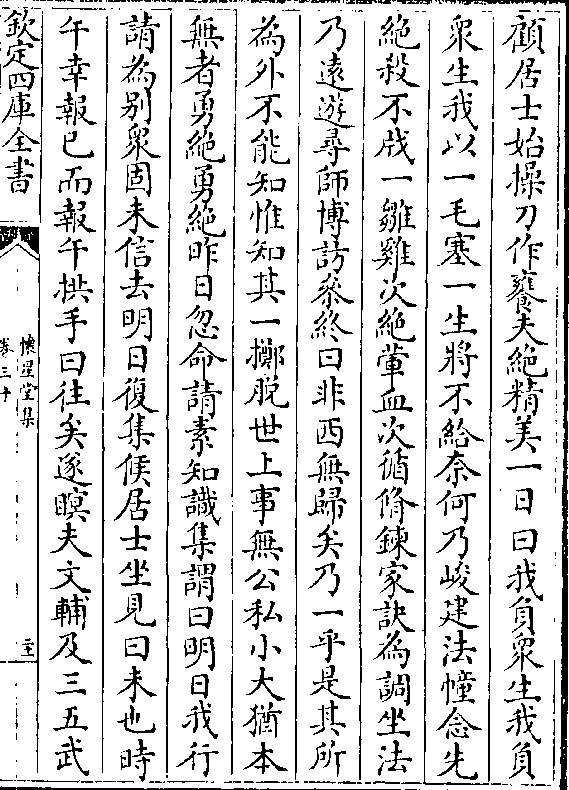 顧居士始操刀作饔夫絶精美一日曰我負衆生我負
衆生我以一毛塞一生將不給奈何乃峻建法幢念先
絶殺不戕一雛雞次絶葷血次循脩鍊家訣為調坐法
乃遠遊尋師博訪叅終曰非西無歸矣乃一乎是其所
為外不能知惟知其一擲脱世上事無公私小大猶本
無者勇絶勇絶昨日忽命請素知識集謂曰明日我行
請為别衆固未信去明日復集候居士坐見曰未也時
午幸報已而報午拱手曰往矣遂瞑夫文輔及三五武
欽定四庫全書
懷星堂集
卷三十
二十